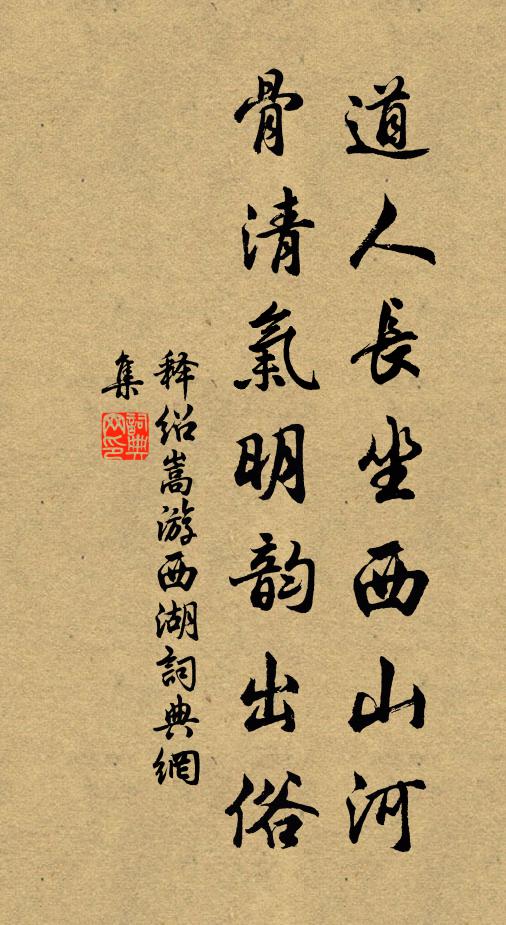 道人長坐西山河
骨清氣明韵出俗
释绍嵩游西湖詞典網
集
詞典網印